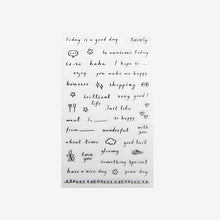 today is a good day lovely
be awesome today
so-so haha I hope to...
enjoy you make me happy
however shopping
brilliant very good!
life just like
ment is to happy
from wonderful with you
about time good luck
love you gloomy
something special
have a nice day your day